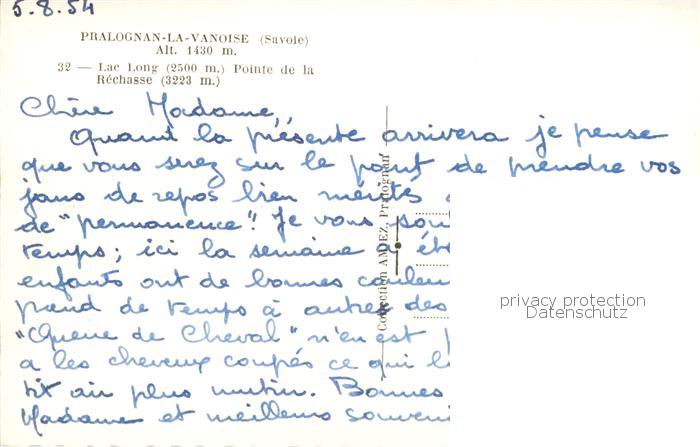 5.8.54
PRALOGNAN-LA-VANOISE (Savoie)
Alt. 1430 m.
32 — Lac Long (2500 m.) Pointe de la
Réchasse (3223 m.)
Chère Madame,
Quand la présente arrivera je pense
que vous serez sur le point de prendre vos
jours de repos bien mérités
de "permanence"! Je vous
temps; ici la semaine a
enfants ont de bonnes
prend de temps à autres des
"Queue de Cheval" n'en est
a les cheveux coupés ce qui
tit air plus mutin. Bonnes
Madame et meilleurs
Collection AMIEZ, Pralognan
privacy protection
Datenschutz